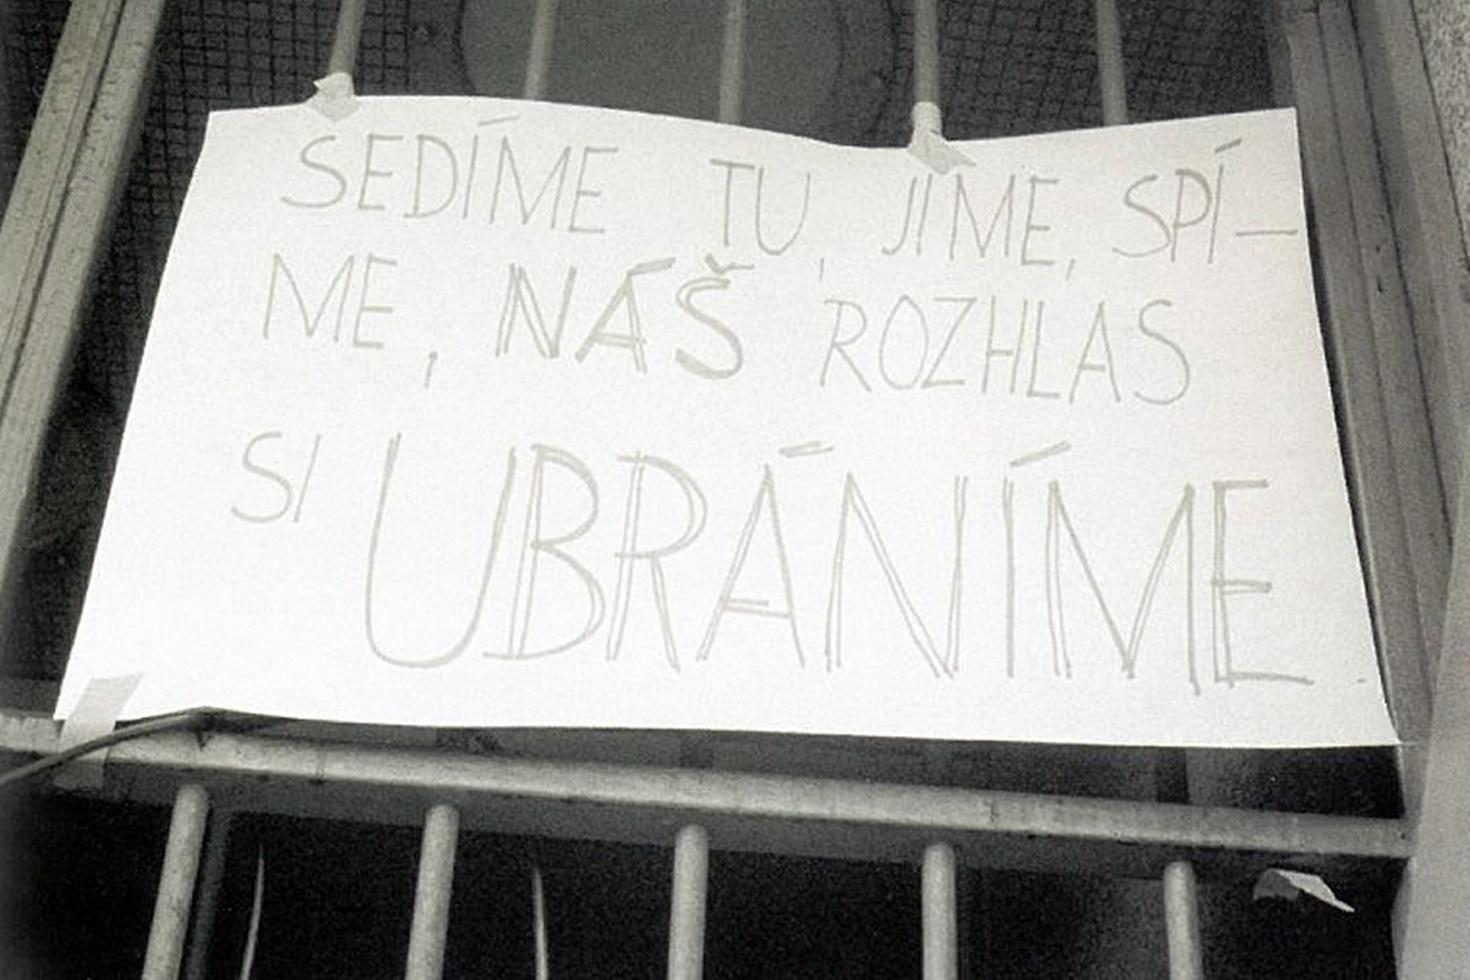 SEDÍME TU, JÍME, SPÍ-
ME, NÁŠ ROZHLAS
SI UBRÁNÍME